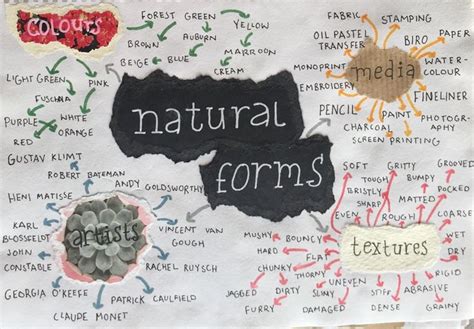 COLOURS
FOREST GREEN
YELLOW
BROWN
AUBURN
BEIGE
BLUE
MARROON
CREAM
LIGHT GREEN
PINK
FUSCHIA
PURPLE
WHITE
ORANGE
RED
natural
forms
FABRIC
STAMPING
OIL PASTEL
TRANSFER
BIRO
PAPER
MONOPRINT
media
WATER-
COLOUR
EMBROIDERY
FINELINER
PENCIL
PAINT
PHOTOGRA-
PHY
CHARCOAL
SCREEN PRINTING
GUSTAV KLIMT
ROBERT BATEMAN
HENI MATISSE
ANDY
GOLDSWORTHY
KARL
BLOSSFELDT
artists
VINCENT VAN
GOUGH
JOHN
CONSTABLE
RACHEL RUYSCH
GEORGIA O'KEEFE
PATRICK
CAULFIELD
CLAUDE MONET
SOFT
GRITTY
GROOVED
TOUGH
BUMPY
BRISTLY
MATTED
SHARP
POCKED
EVEN
ROUGH
COARSE
MUSHY
BOUNCY
textures
WET
HARD
CHUNKY
FLAKY
THORNY
DRY
JAGGED
UNEVEN
RIGID
DIRTY
SOLID
ABRASIVE
FURRY
DAMAGED
DENSE
GRAINY